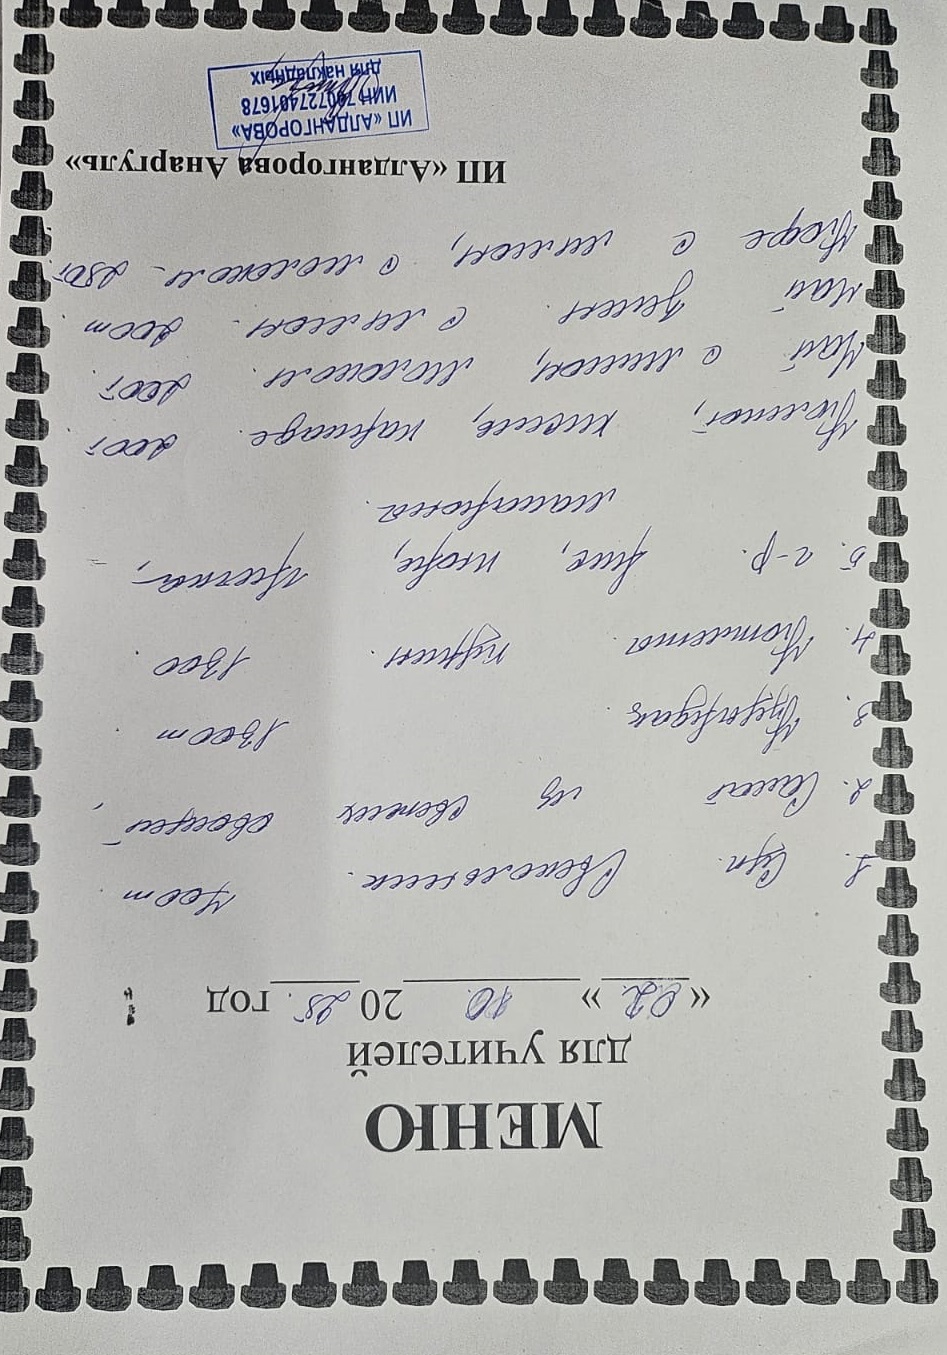 МЕНЮ
ДЛЯ УЧИТЕЛЕЙ
« 02. » 10. 2025. год
1. Суп Свекольник. 400т
2. Салат из свежих овощей
3. 1300т
4. Котлета куриная. 1300
5. г-р. рис, пюре, гречка,
макароны.
Компот, кисель, каркаде. 200т
Чай с лимон, молоком. 200т
Чай зелен. с лимон. 200т
Кофе с лимон, с молоком. 250т.
ИП «Алдангорова Анаргуль»
ИП «АЛДАНГОРОВА»
ИИН 790727401678
для накладных